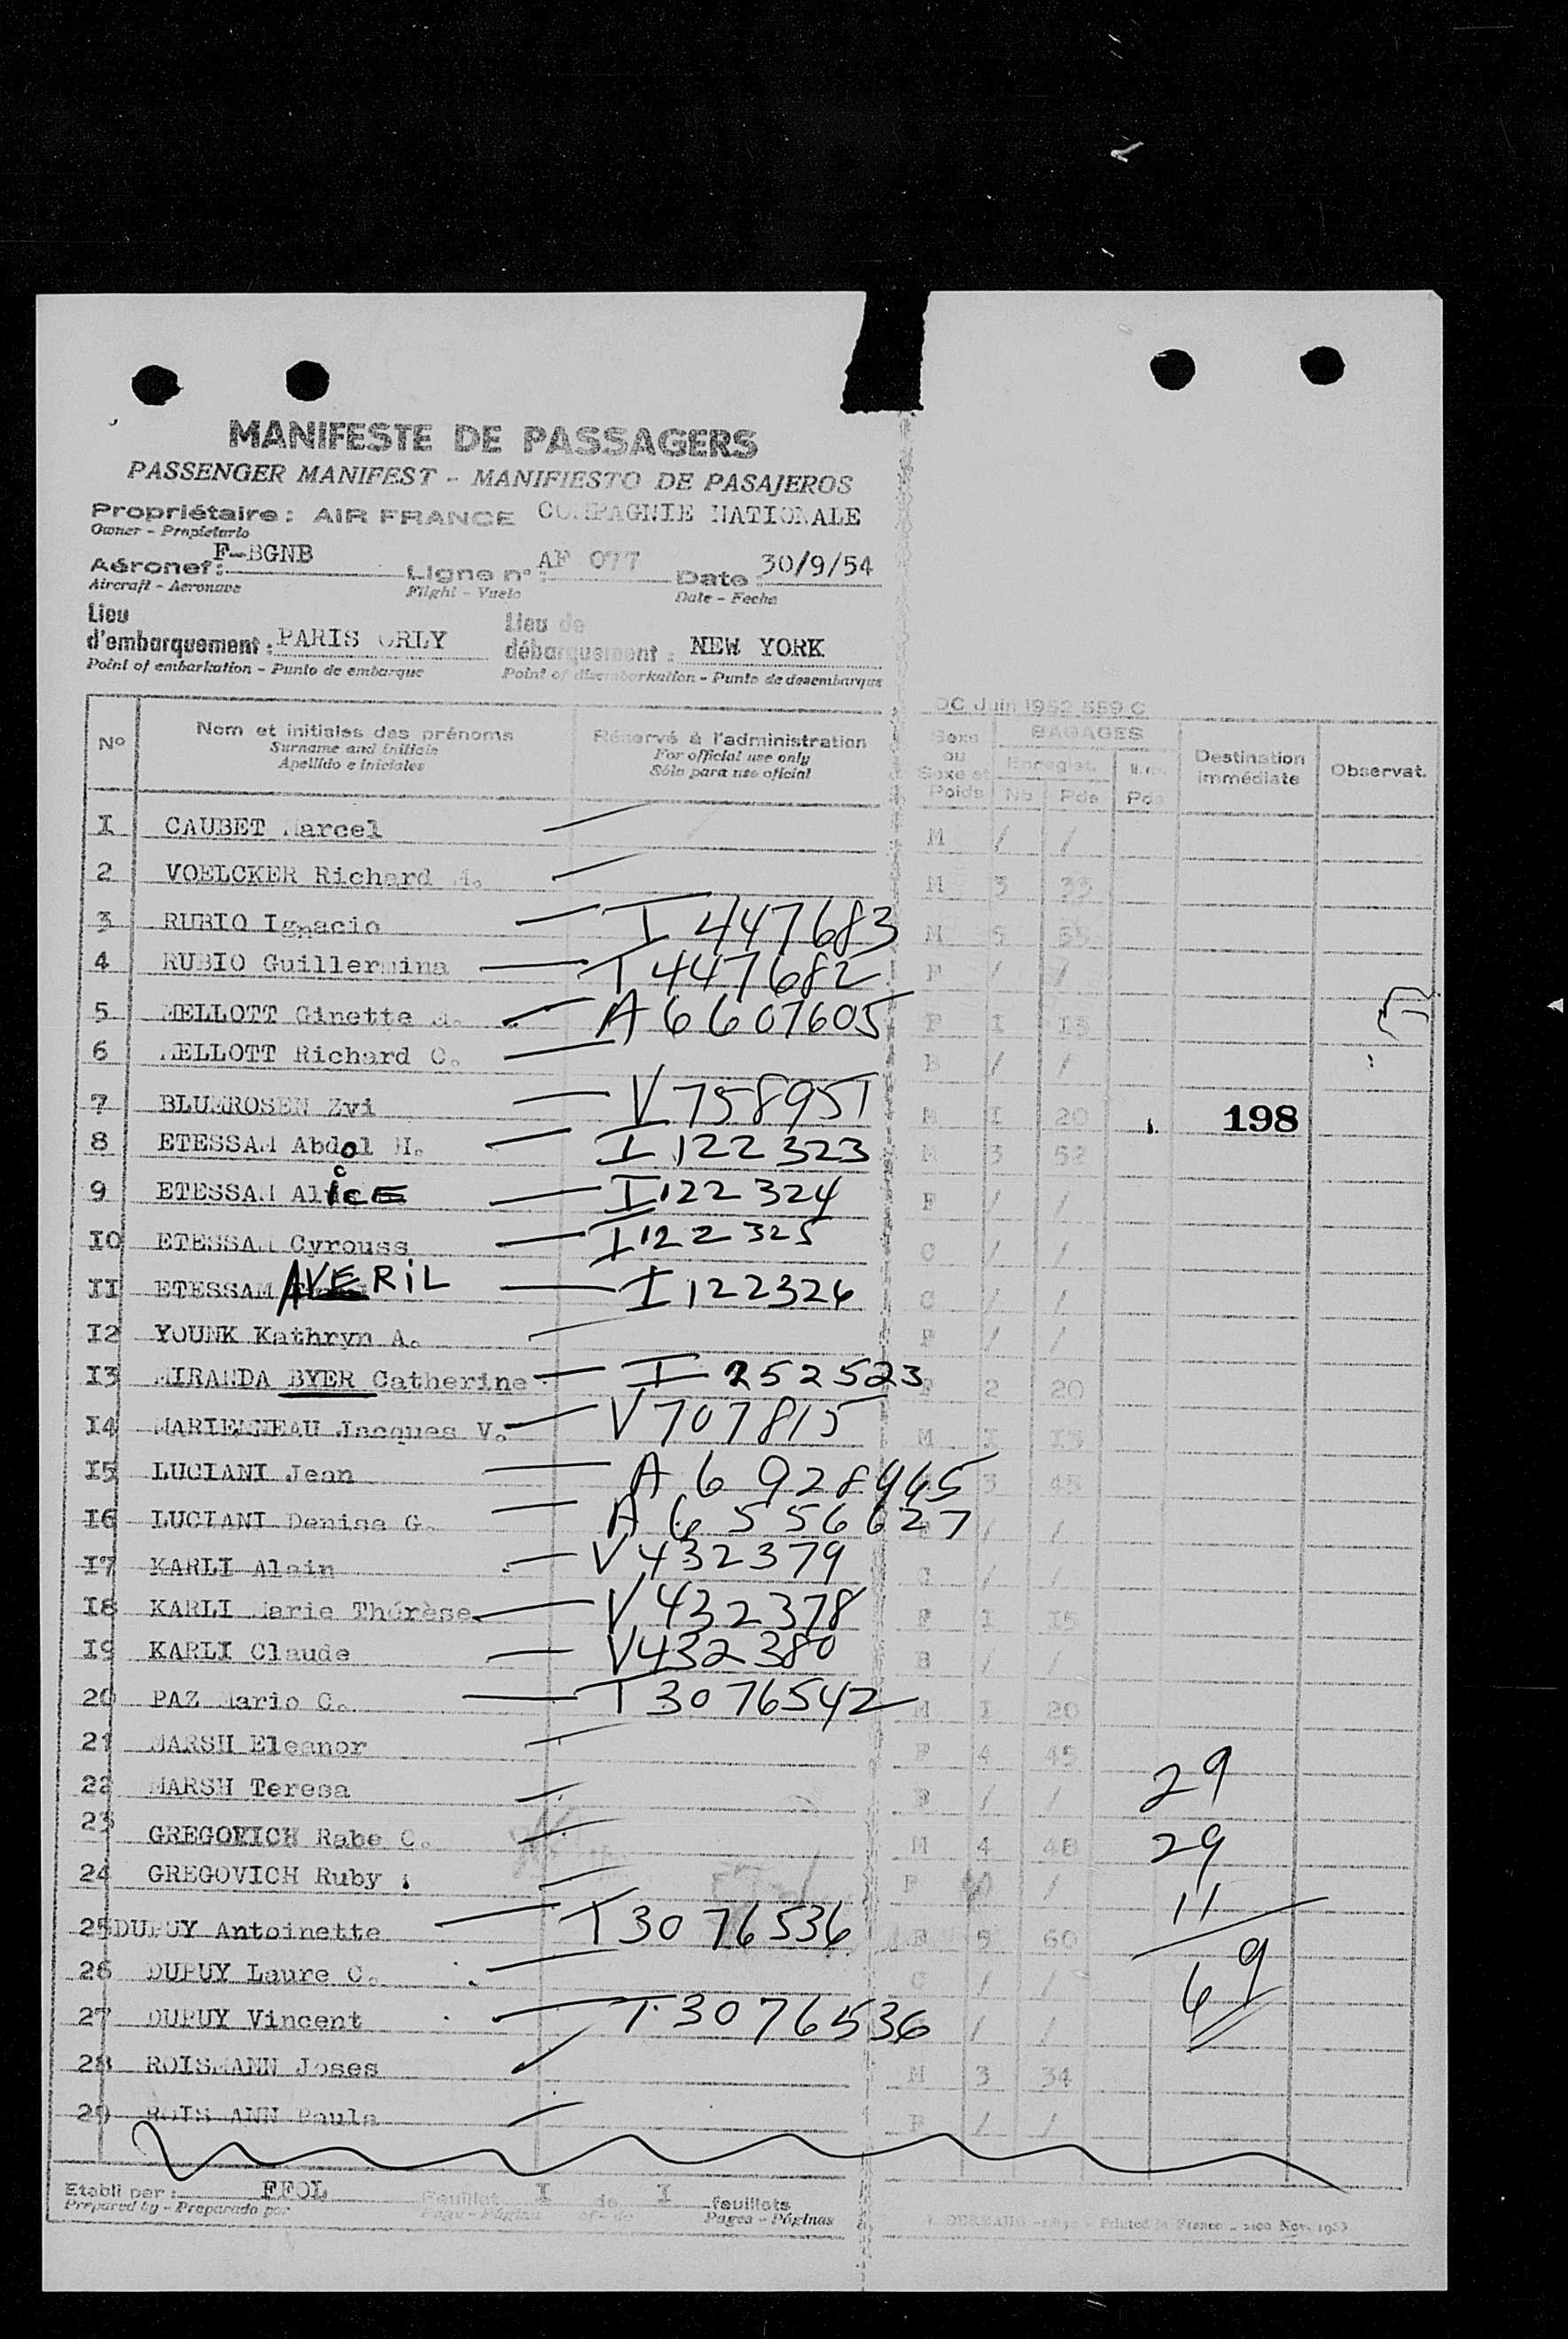 MANIFESTE DE PASSAGERS
PASSENGER MANIFEST - MANIFIESTO DE PASAJEROS
Propriétaire : AIR FRANCE COMPAGNIE NATIONALE
Owner - Propietario
Aéronef : F-BGNB Ligne n° : AF 077 Date : 30/9/54
Aircraft - Aeronave Flight - Vuelo Date - Fecha
Lieu d'embarquement : PARIS ORLY Lieu de débarquement : NEW YORK
Point of embarkation - Punto de embarque Point of disembarkation - Punto de desembarque
DC Juin 1952 559 C
N° Nom et initiales des prénoms Réservé à l'administration Sexe ou Sexe et Poids BAGAGES Destination immédiate Observat.
Surname and initials For official use only Enregist.
Apellido e iniciales Sólo para uso oficial Nb Pds Pds
1 CAUBET Marcel M / /
2 VOELCKER Richard M 3 33
3 RUBIO Ignacio I 447683 M 5
4 RUBIO Guillermina T 447682 F / /
5 MELLOTT Ginette A6607605 F I
6 MELLOTT Richard C. B / /
7 BLUMROSEN Zvi V 758951 M I 20 198
8 ETESSAM Abdol H. I 122323 M 3 52
9 ETESSAM AliCE I 122324 F / /
10 ETESSAM Cyrouss I 122325 C / /
11 ETESSAM AVERIL I 122326 C / /
12 YOUNK Kathryn A. F / /
13 MIRANDA BYER Catherine I 252523 F 2 20
14 Jacques V. V 707815 M I
15 LUCIANI Jean A6 928945 3 45
16 LUCIANI Denise G. A6 556627 / /
17 KARLI Alain V432379 / /
18 KARLI Marie Thérèse V 432378 F I 15
19 KARLI Claude V432380 B / /
20 PAZ Mario C. T 3076542 M I 20
21 MARSH Eleanor F 4 45
22 MARSH Teresa / / 29
23 GREGOVICH Rabe C. M 4 48 29
24 GREGOVICH Ruby F / 11
25 DUPUY Antoinette T3076536 F 5 60
26 DUPUY Laure C. C / / 69
27 DUPUY Vincent T 3076536 / /
28 ROISMANN Joses M 3 34
29 ROISMANN Paula F / /
Etabli par : FFOL Feuillet I de I feuillets
Prepared by - Preparado por Page - Página of - de Pages - Páginas
Printed in France - Nov. 1953